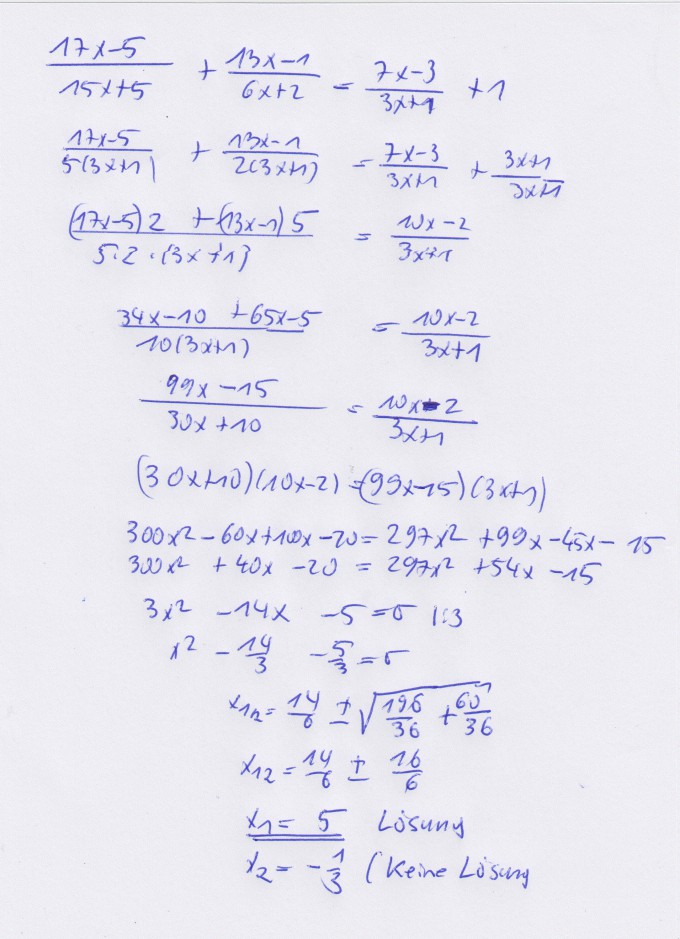 (17x-5)/(15x+5) + (13x-1)/(6x+2) = (7x-3)/(3x+1) +1
(17x-5)/(5(3x+1)) + (13x-1)/(2(3x+1)) = (7x-3)/(3x+1) + (3x+1)/(3x+1)
((17x-5)2 +(13x-1)5)/(5·2·(3x+1)) = (10x-2)/(3x+1)
(34x-10 +65x-5)/(10(3x+1)) = (10x-2)/(3x+1)
(99x-15)/(30x+10) = (10x-2)/(3x+1)
(30x+10)(10x-2)=(99x-15)(3x+1)
300x² - 60x+100x -20 = 297x² +99x -45x - 15
300x² + 40x -20 = 297x² +54x -15
3x² -14x -5 = 0 |:3
x² - 14/3 - 5/3 = 0
x₁₂ = 14/6 ± √(196/36 + 60/36)
x₁₂ = 14/6 ± 16/6
x₁ = 5 Lösung
x₂ = -1/3 (Keine Lösung